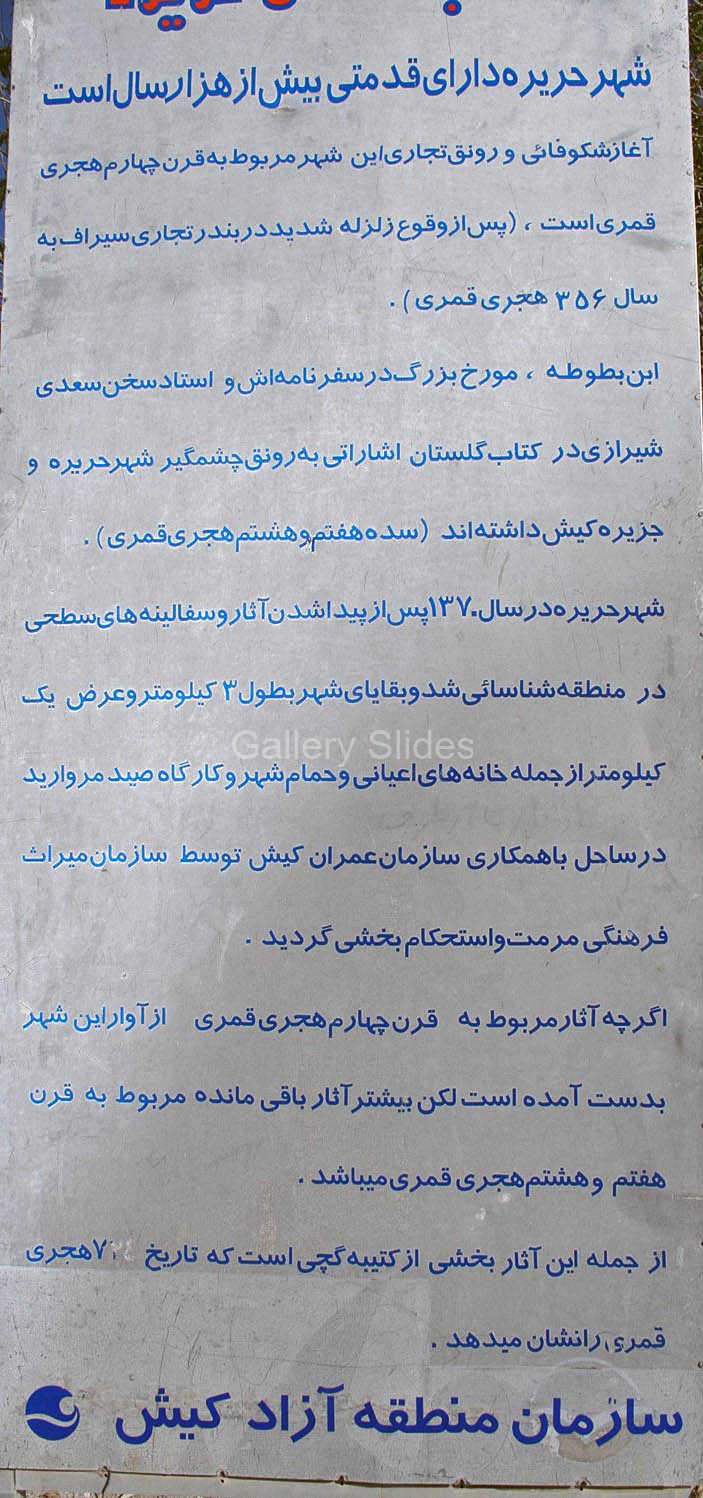 شهر حریره دارای قدمتی بیش از هزار سال است
آغاز شکوفائی و رونق تجاری این شهر مربوط به قرن چهارم هجری
قمری است ، (پس از وقوع زلزله شدید در بندر تجاری سیراف به
سال ۳۵۶ هجری قمری) .
ابن بطوطه ، مورخ بزرگ در سفرنامه‌اش و استاد سخن سعدی
شیرازی در کتاب گلستان اشاراتی به رونق چشمگیر شهر حریره و
جزیره کیش داشته‌اند (سده هفتم و هشتم هجری قمری) .
شهر حریره در سال ۱۳۷۰ پس از پیدا شدن آثار و سفالینه‌های سطحی
در منطقه شناسائی شد و بقایای شهر بطول ۳ کیلومتر و عرض یک
Gallery Slides
کیلومتر از جمله خانه‌های اعیانی و حمام شهر و کارگاه صید مروارید
در ساحل با همکاری سازمان عمران کیش توسط سازمان میراث
فرهنگی مرمت و استحکام بخشی گردید .
اگر چه آثار مربوط به قرن چهارم هجری قمری از آوار این شهر
بدست آمده است لکن بیشتر آثار باقی مانده مربوط به قرن
هفتم و هشتم هجری قمری میباشد .
از جمله این آثار بخشی از کتیبه گچی است که تاریخ هجری
قمری را نشان میدهد .
سازمان منطقه آزاد کیش